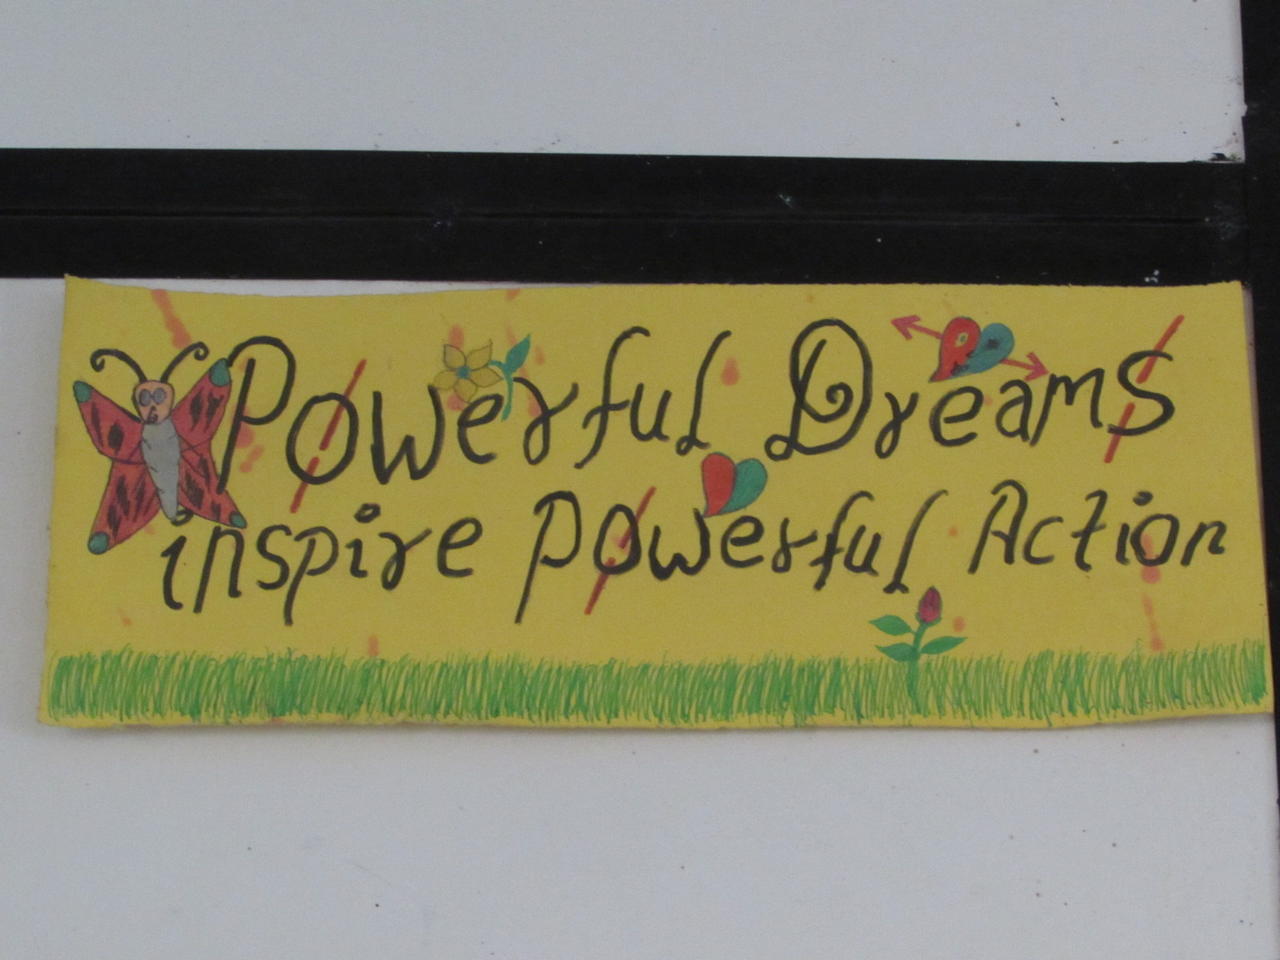 Powerful Dreams
inspire Powerful Action